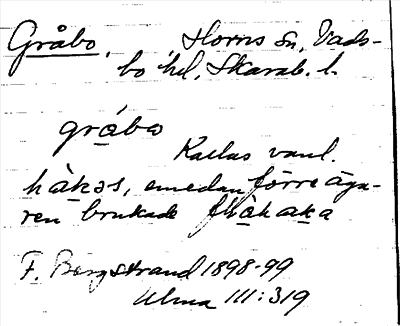 Gråbo, Horns sn, Vads-
bo hd, Skarab. l.
gråbo
Kallas vanl.
håkas, emedan förre äga-
ren brukade
F. Bergstrand 1898-99
Ulma III:319